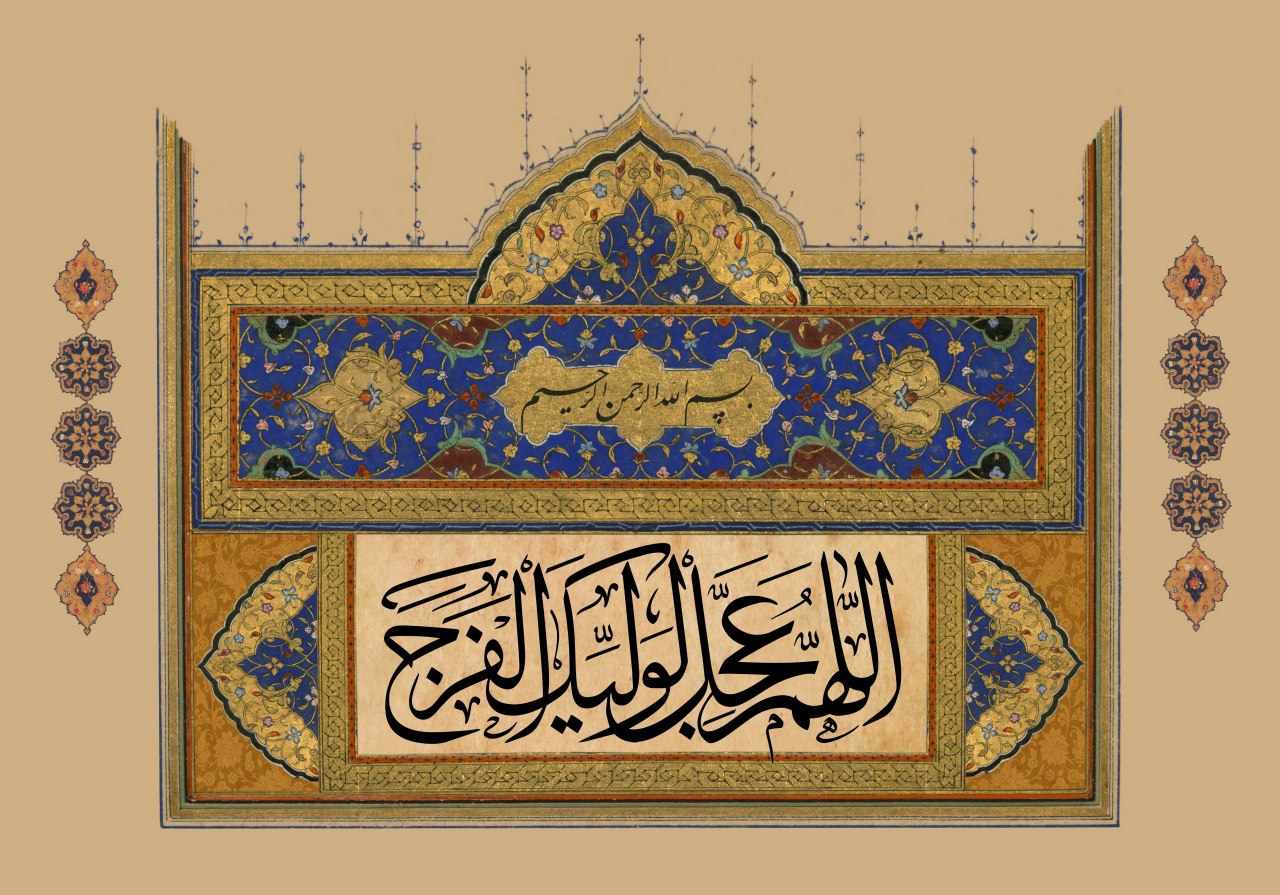 بسم الله الرحمن الرحیم
اللَّهُمَّ عَجِّل لِوَلِیِّکَ الفَرَجَ